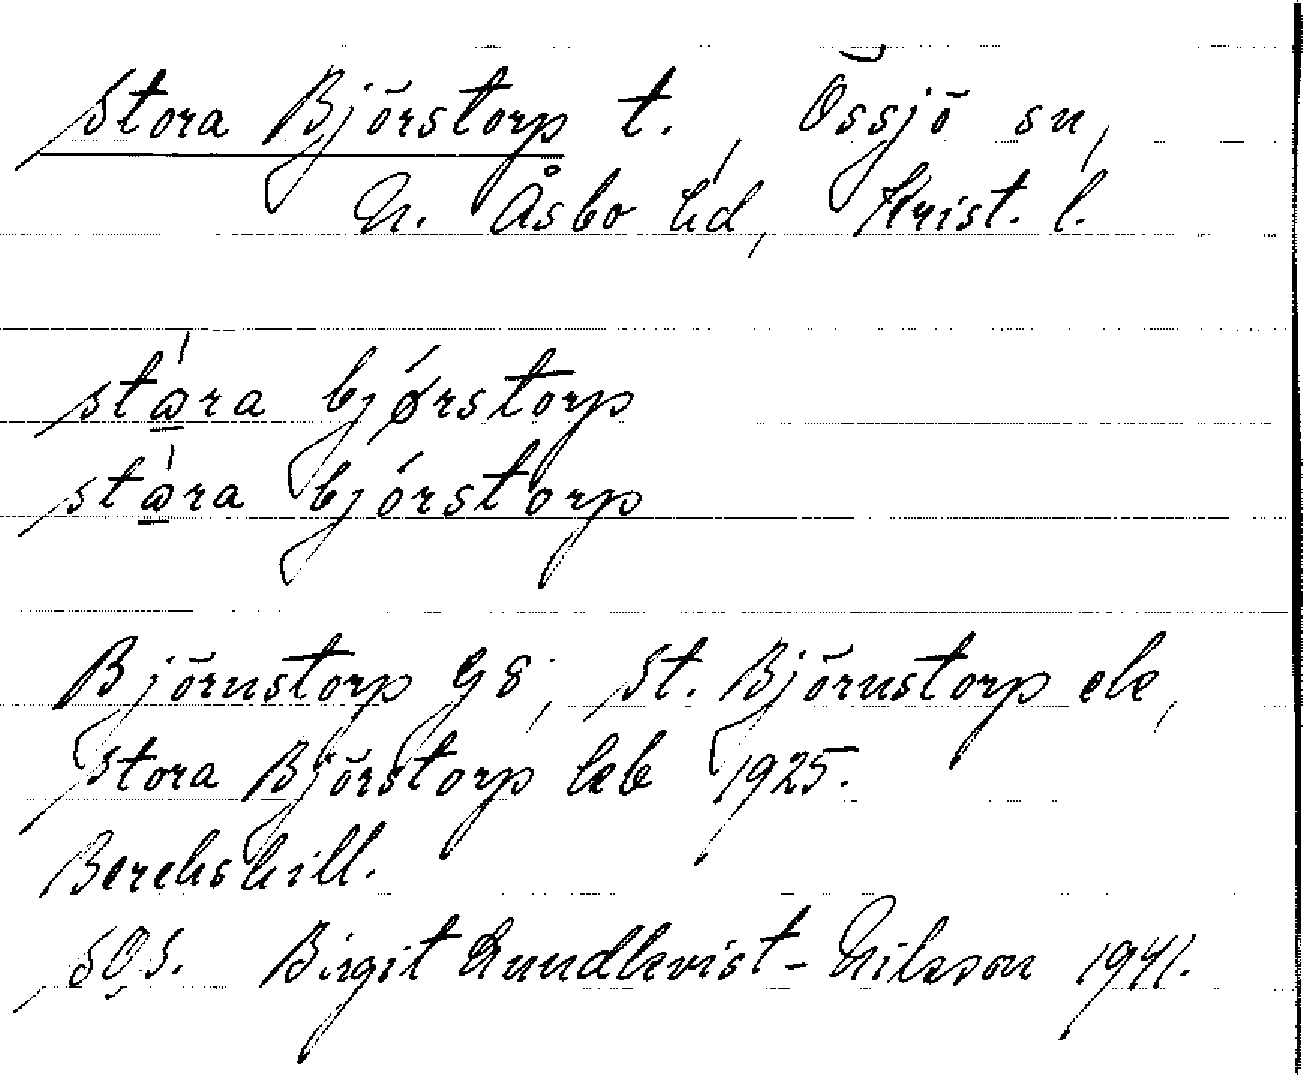 Stora Björstorp t., Össjö sn,
N. Åsbo hd, Krist. l.
stɷ́ra bjǿrstorp
stɷ́ra bjórstorp
Björnstorp GS, St. Björnstorp ek,
Stora Björstorp kb 1925.
Berchskill.
SOS. Birgit Lundkvist-Nilsson 1941.